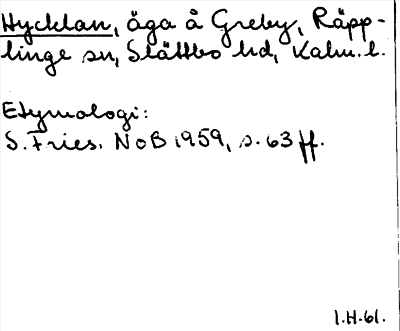 Hycklan, äga å Greby, Räpp-
linge sn, Slättbo hd, Kalm. l.
Etymologi:
S. Fries. NoB 1959, s. 63 ff.
I.H.61.